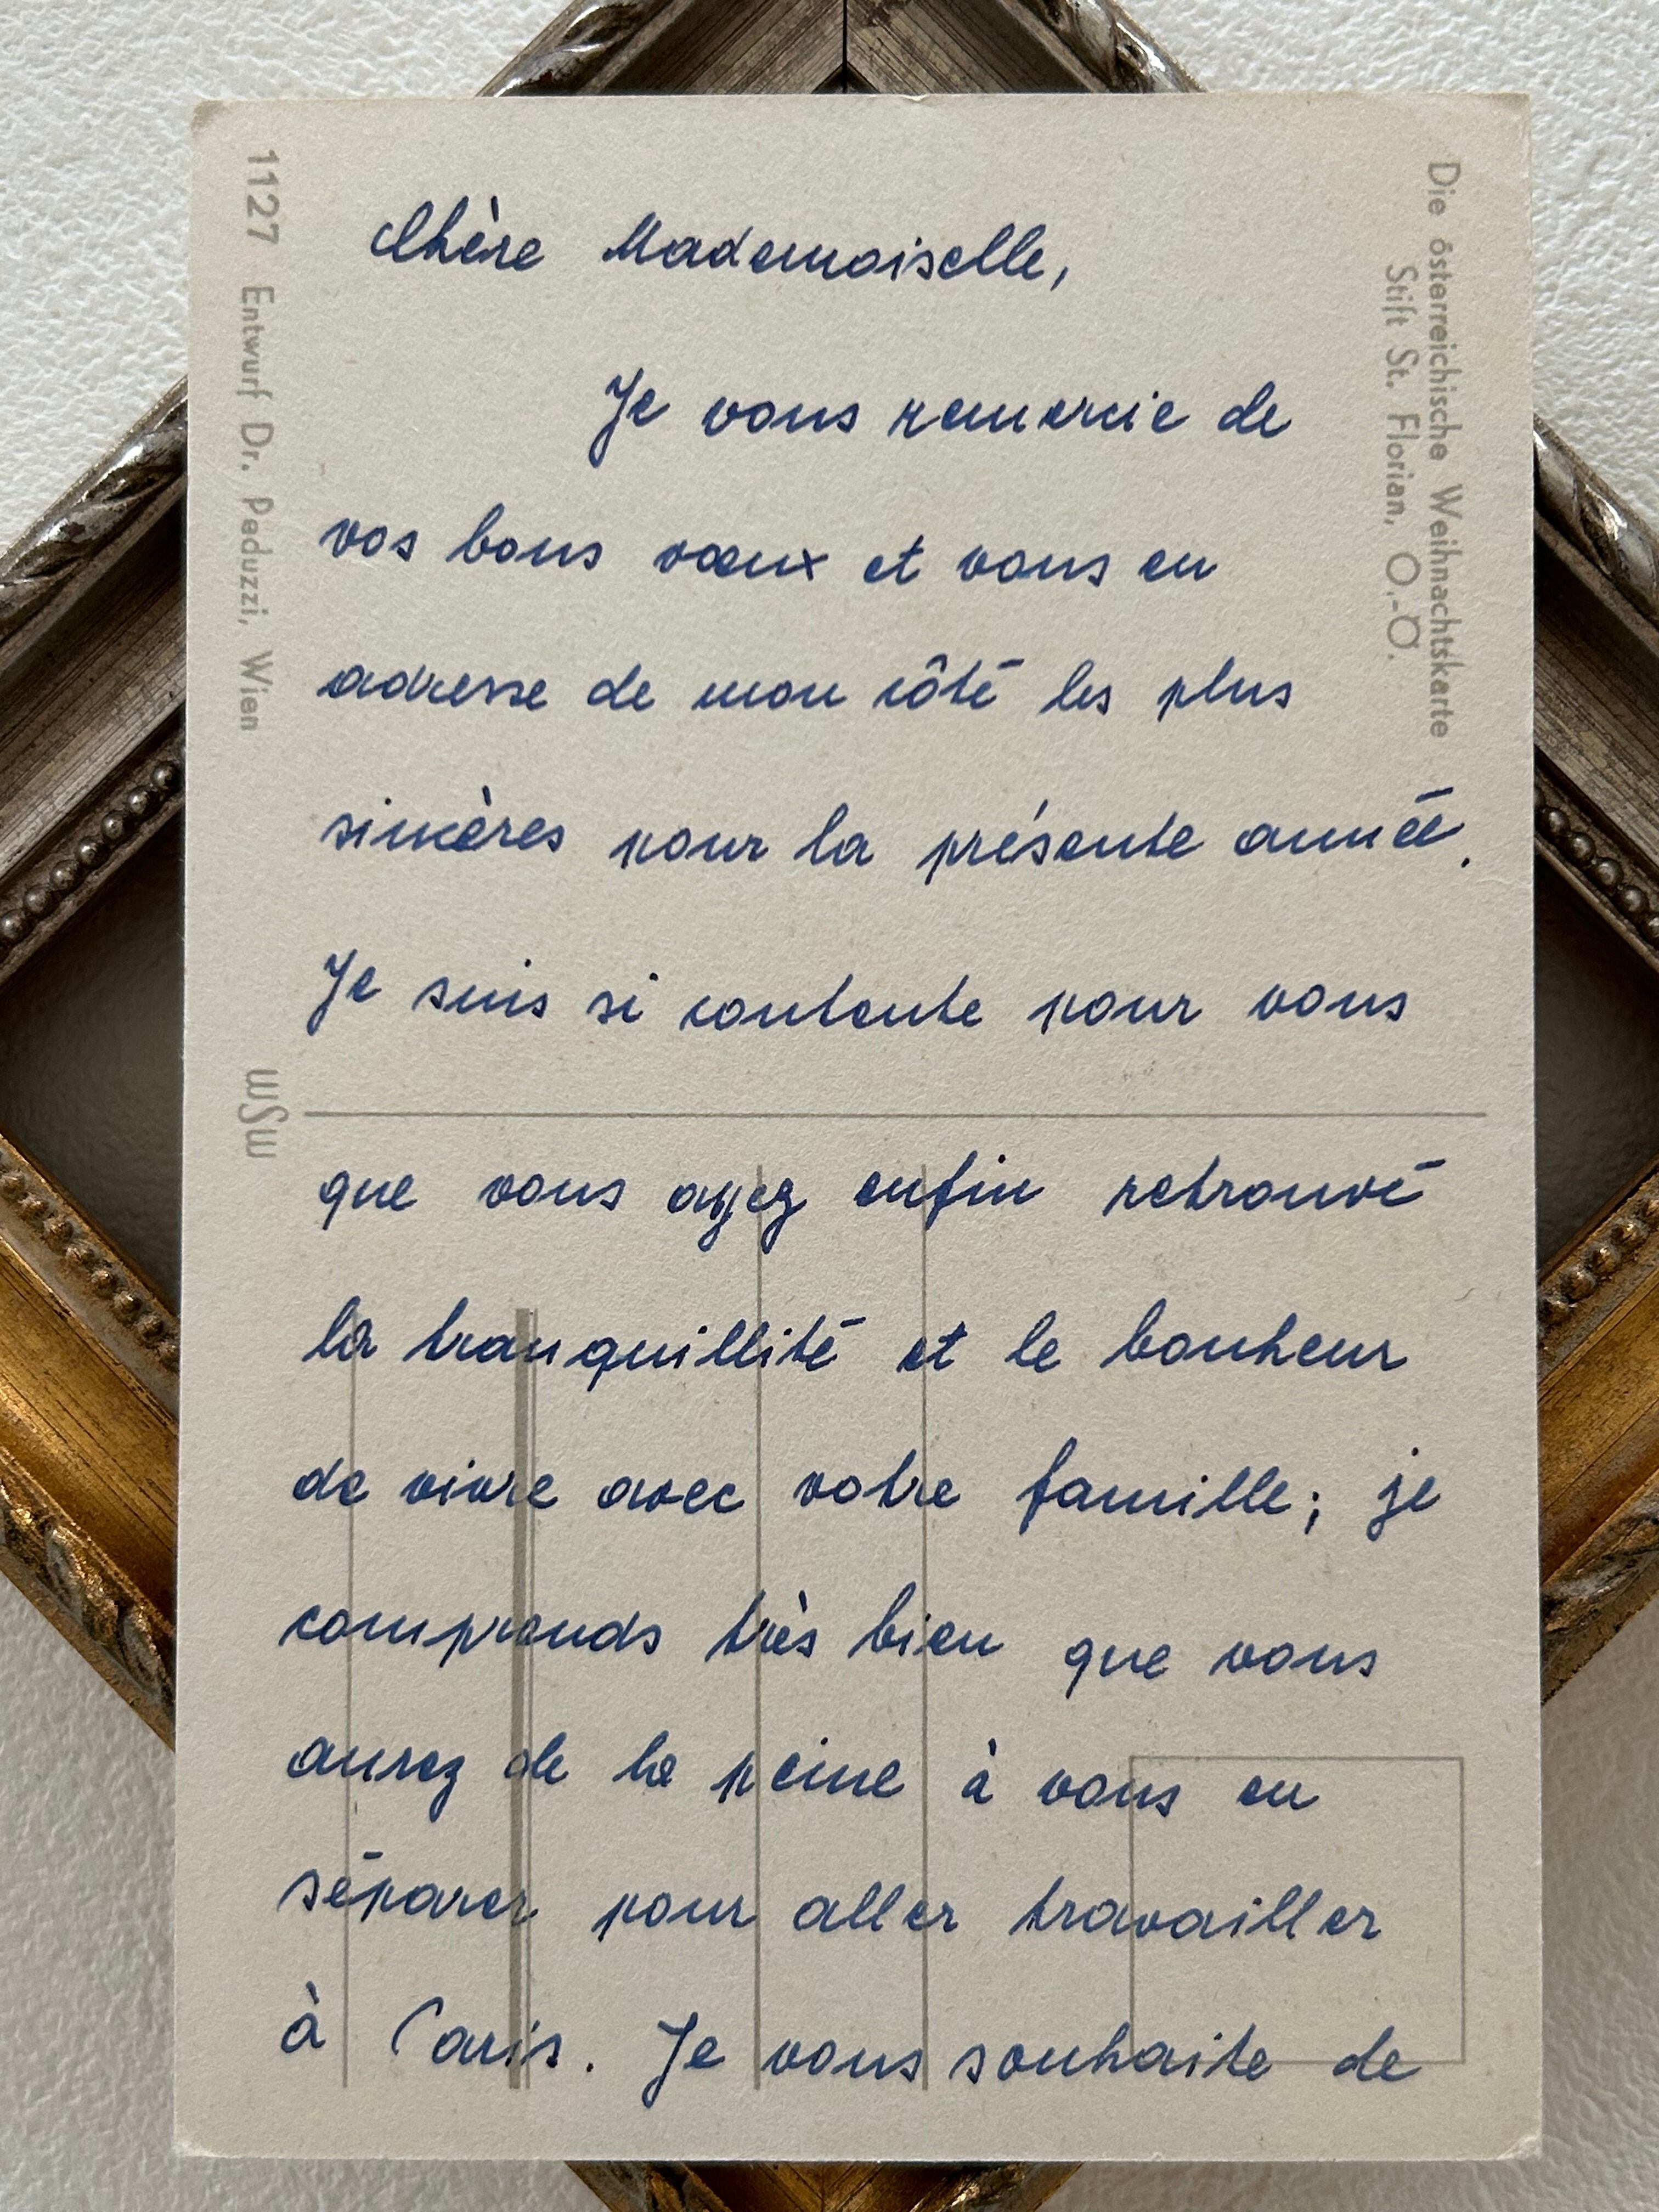 Chère Mademoiselle,
Je vous remercie de
vos bons vœux et vous en
adresse de mon côté les plus
sincères pour la présente année.
Je suis si contente pour vous
que vous ayez enfin retrouvé
la tranquillité et le bonheur
de vivre avec votre famille; je
comprends très bien que vous
aurez de la peine à vous en
séparer pour aller travailler
à Paris. Je vous souhaite de
Die österreichische Weihnachtskarte
Stift St. Florian, O.-Ö.
1127 Entwurf Dr. Peduzzi, Wien
WSW